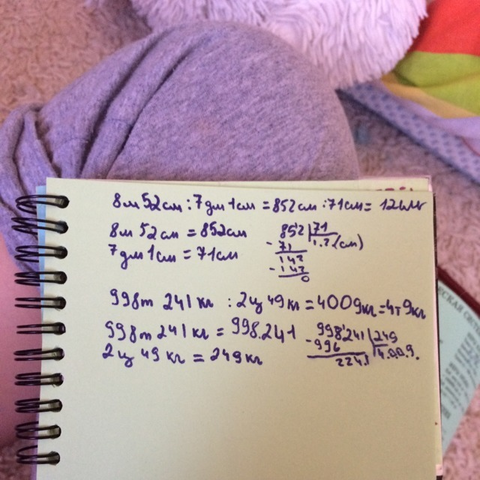 8м 52см : 7дм 1см = 852см : 71см = 12см
8м 52см = 852см
7дм 1см = 71см
852 71
- 71 12(см)
142
- 142
0
998т 241кг : 2ц 49кг = 4009кг = 4т 9кг
998т 241кг = 998.241
2ц 49кг = 249кг
998241 249
- 996 4.0.0.9.
2241